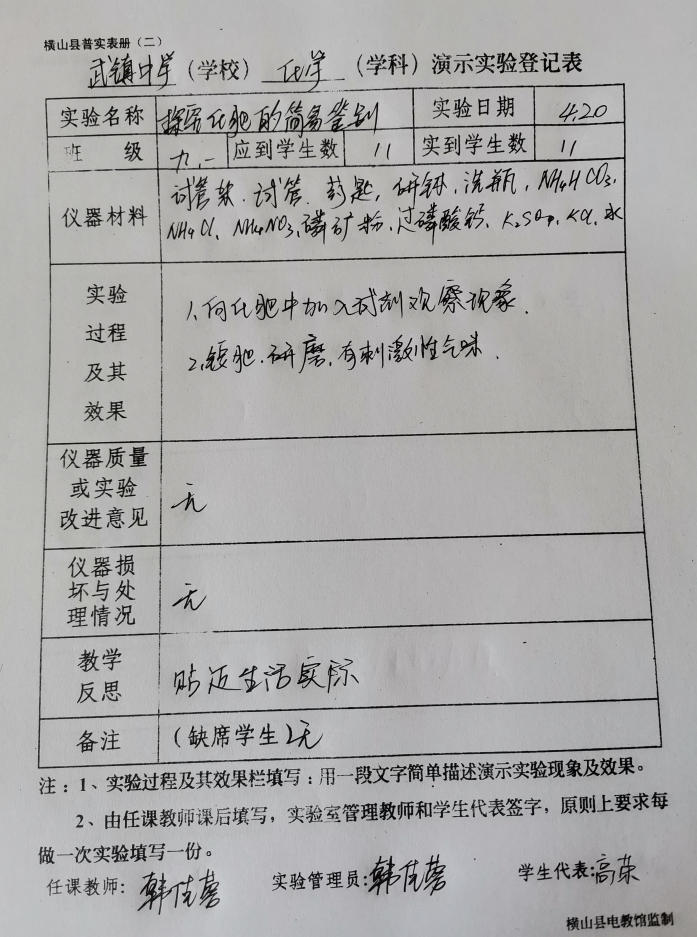 横山县普实表册（二）
武镇中学（学校） 化学 （学科）演示实验登记表
实验名称 探究化肥的简易鉴别 实验日期 4.20
班 级 九.一 应到学生数 11 实到学生数 11
试管架.试管.药匙,研钵,洗瓶,NH4HCO3,
仪器材料
NH4Cl, NH4NO3,磷矿粉,过磷酸钙, K2SO4, KCl,水
实验
过程
及其
效果
1.向化肥中加入试剂观察现象.
2.铵肥.研磨,有刺激性气味.
仪器质量
或实验
改进意见
无
仪器损
坏与处
理情况
无
教学
反思
贴近生活实际
备注 (缺席学生)无
注：1、实验过程及其效果栏填写：用一段文字简单描述演示实验现象及效果。
2、由任课教师课后填写，实验室管理教师和学生代表签字，原则上要求每
做一次实验填写一份。
任课教师： 韩 实验管理员: 韩 学生代表:高荣
横山县电教馆监制